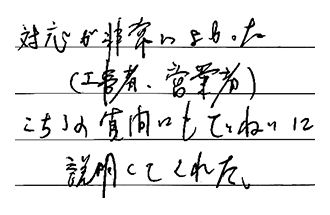 対応が非常によかった
(工事者、営業者)
こちらの質問にもていねいに
説明してくれた。